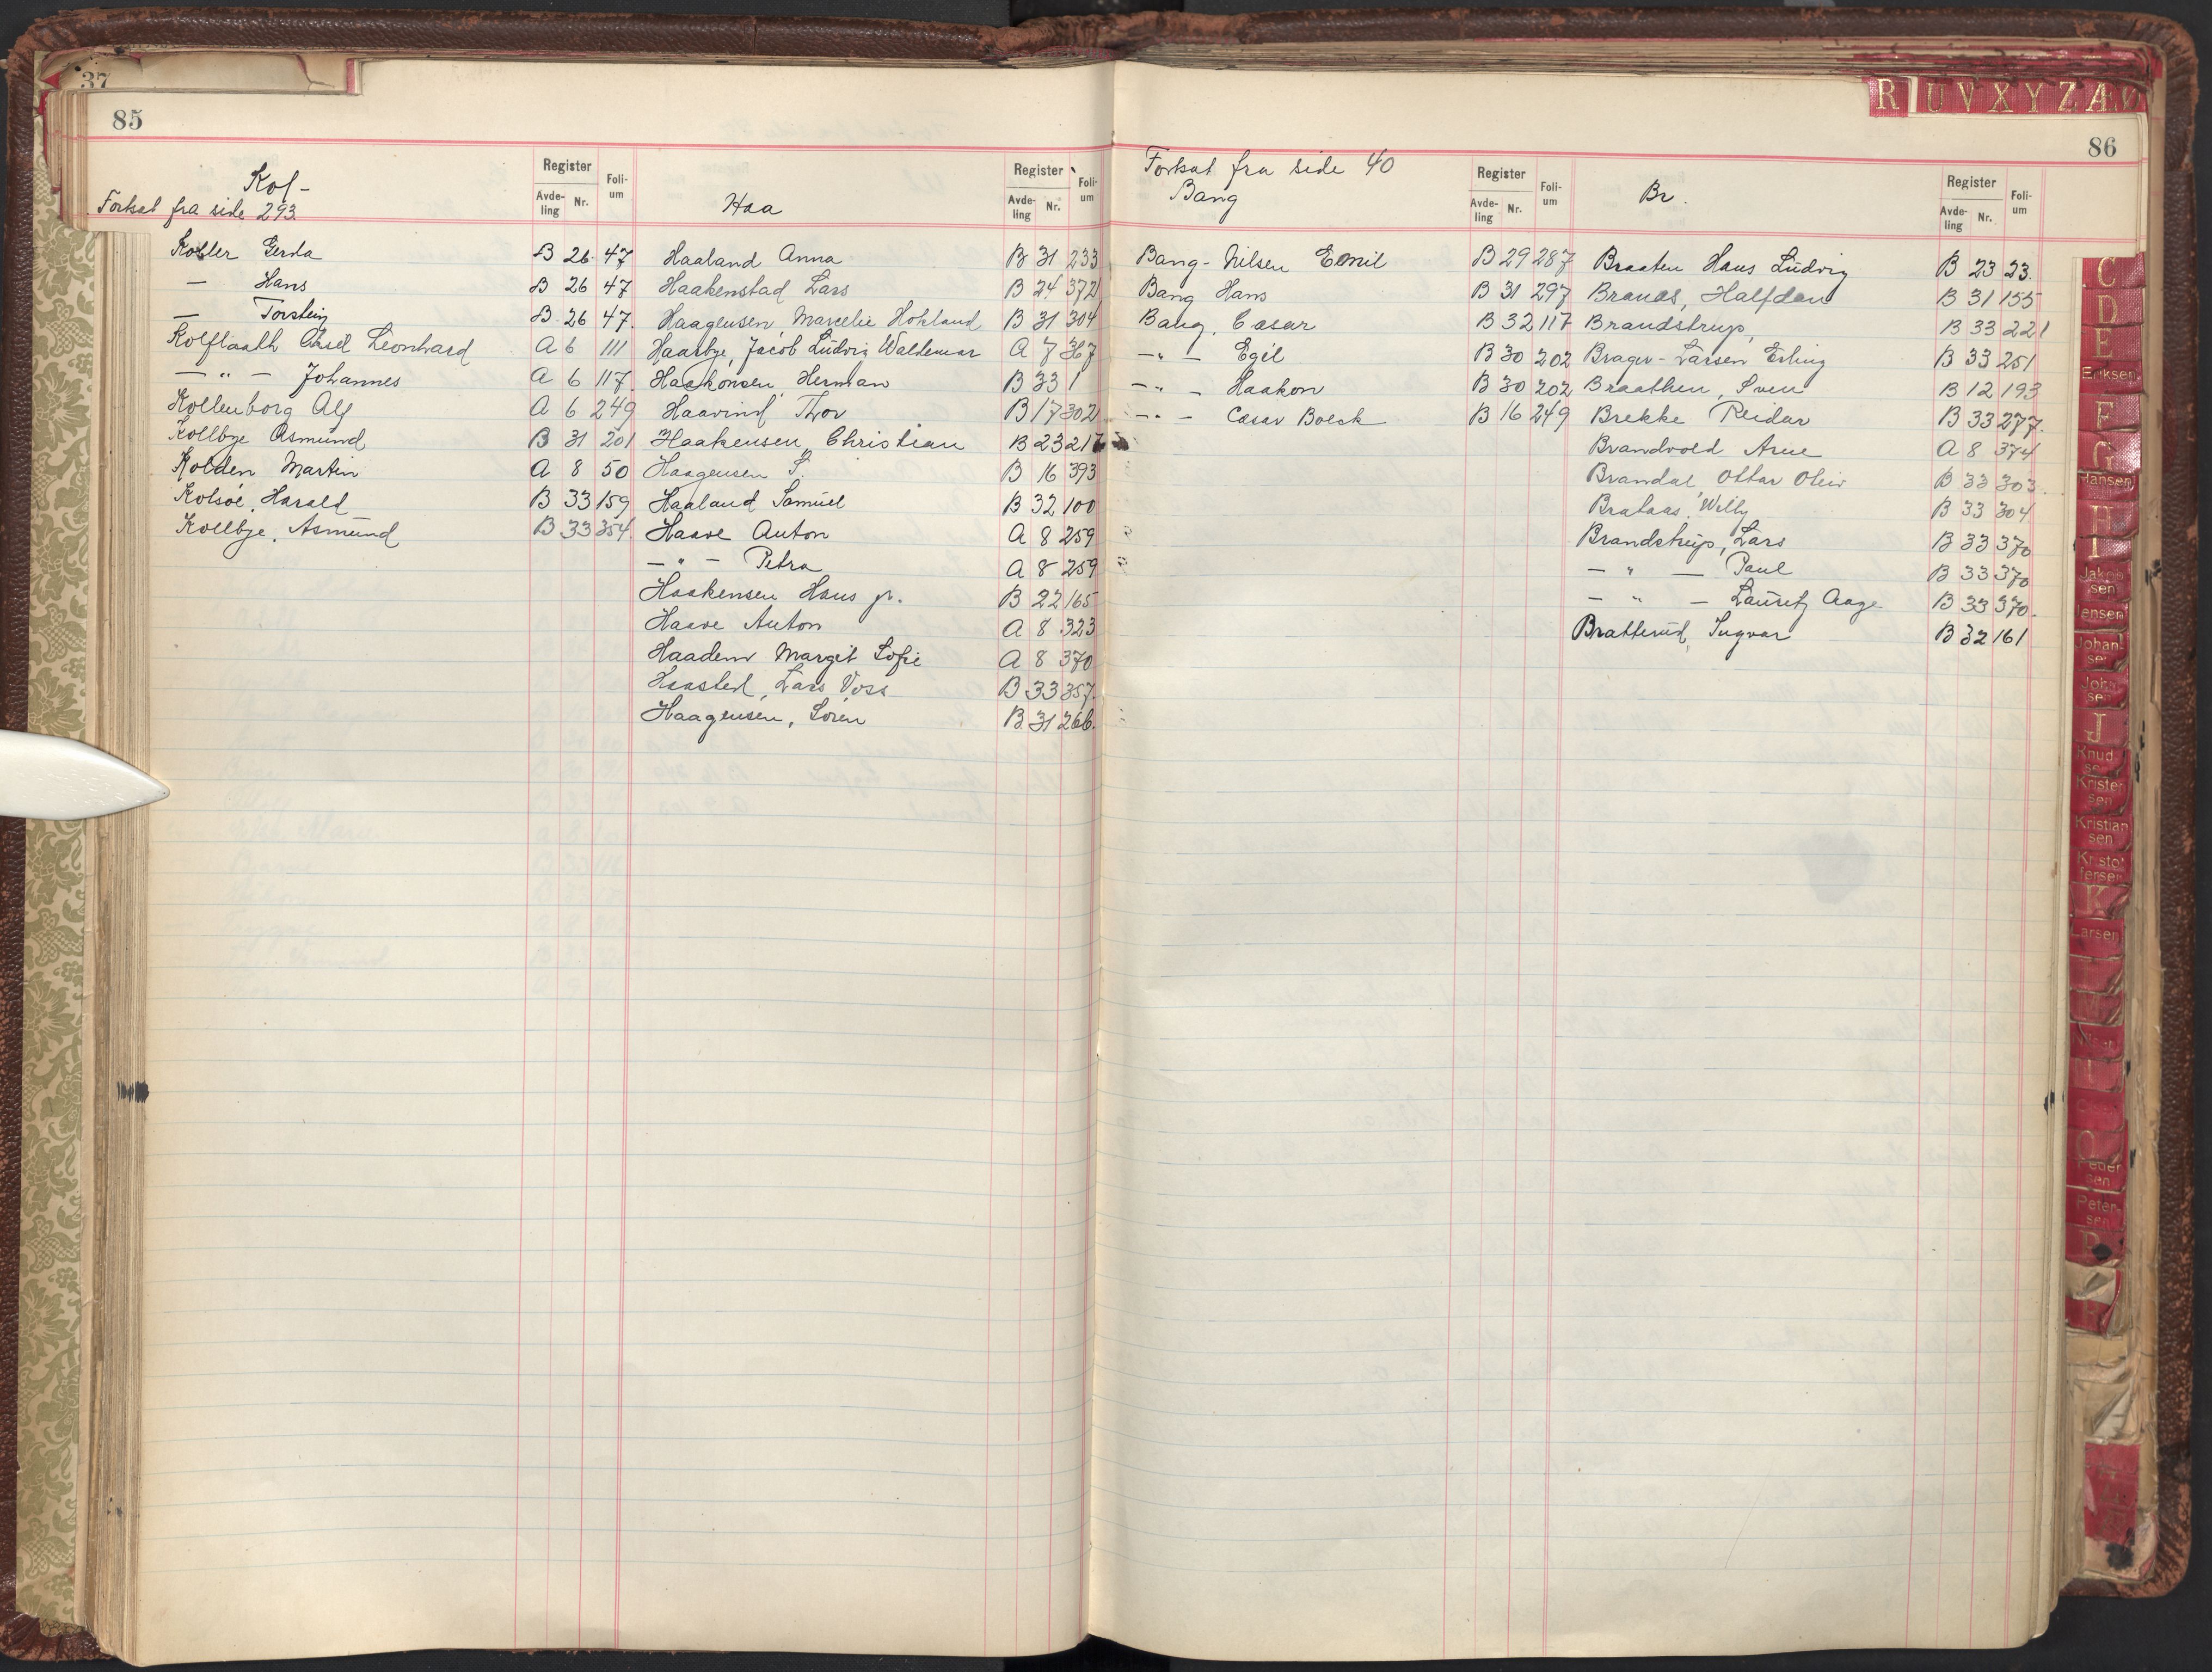 37
85
Kol-
Fortsat fra side 293
Register
Avde-ling Nr.
Foli-um
Koller Gerda B 26 47
— Hans B 26 47
— Torstein B 26 47.
Kolflaath Aksel Leonhard A 6 111
— " — Johannes A 6 117.
Kollenborg Alf A 6 249
Kollbye Asmund B 31 201
Kolden Martin A 8 50
Kolsöe, Harald B 33 159
Kollbye, Asmund B 33 354.
Haa
Register
Avde-ling Nr.
Foli-um
Haaland Anna B 31 233
Haakenstad Lars B 24 372
Haagensen, Marcelie Hokland B 31 304
Haarbye, Jacob Ludvig Waldemar A 7 367
Haakonsen, Herman B 33 1
Haavind, Thor B 17 302
Haakensen, Christian B 23 217
Haagensen S. B 16 393
Haaland Samuel B 32 100
Haave Anton A 8 259
— " — Petra A 8 259
Haakensen Hans jr. B 22 165
Haave Anton A 8 323
Haadem Margit Sofie A 8 370
Haasted, Lars Voss B 33 357.
Haagensen, Sören B 31 266.
86
Fortsat fra side 40
Bang
Register
Avde-ling Nr.
Foli-um
Bang-Nilsen Emil B 29 287
Bang Hans B 31 297
Bang, Cæsar B 32 117
— " — Egil B 30 202
— " — Haakon B 30 202
— " — Cæsar Boeck B 16 249
Br.
Register
Avde-ling Nr.
Foli-um
Braaten Hans Ludvig B 23 23.
Brandt, Halfdan B 31 155
Brandstrup, B 33 221
Brager-Larsen Erling B 33 251
Braathen, Sven B 12 193
Brekke Reidar B 33 277.
Brandvold Arne A 8 374
Brandal, Ottar Oliv B 33 303.
Brataas, Willy B 33 304
Brandstrup, Lars B 33 370
— " — Paul B 33 370
— " — Lauritz Aage B 33 370.
Bratterud, Ingvar B 32 161
R U V X Y Z Æ Ø
C
D
E
Eriksen
F
G
Hansen
H
I
Jakob-sen
Jensen
Johan-sen
John-sen
J
Knud-sen
Krister-sen
Kristian-sen
Kristof-fersen
K
Larsen
O
Peder-sen
Peter-sen
P
R